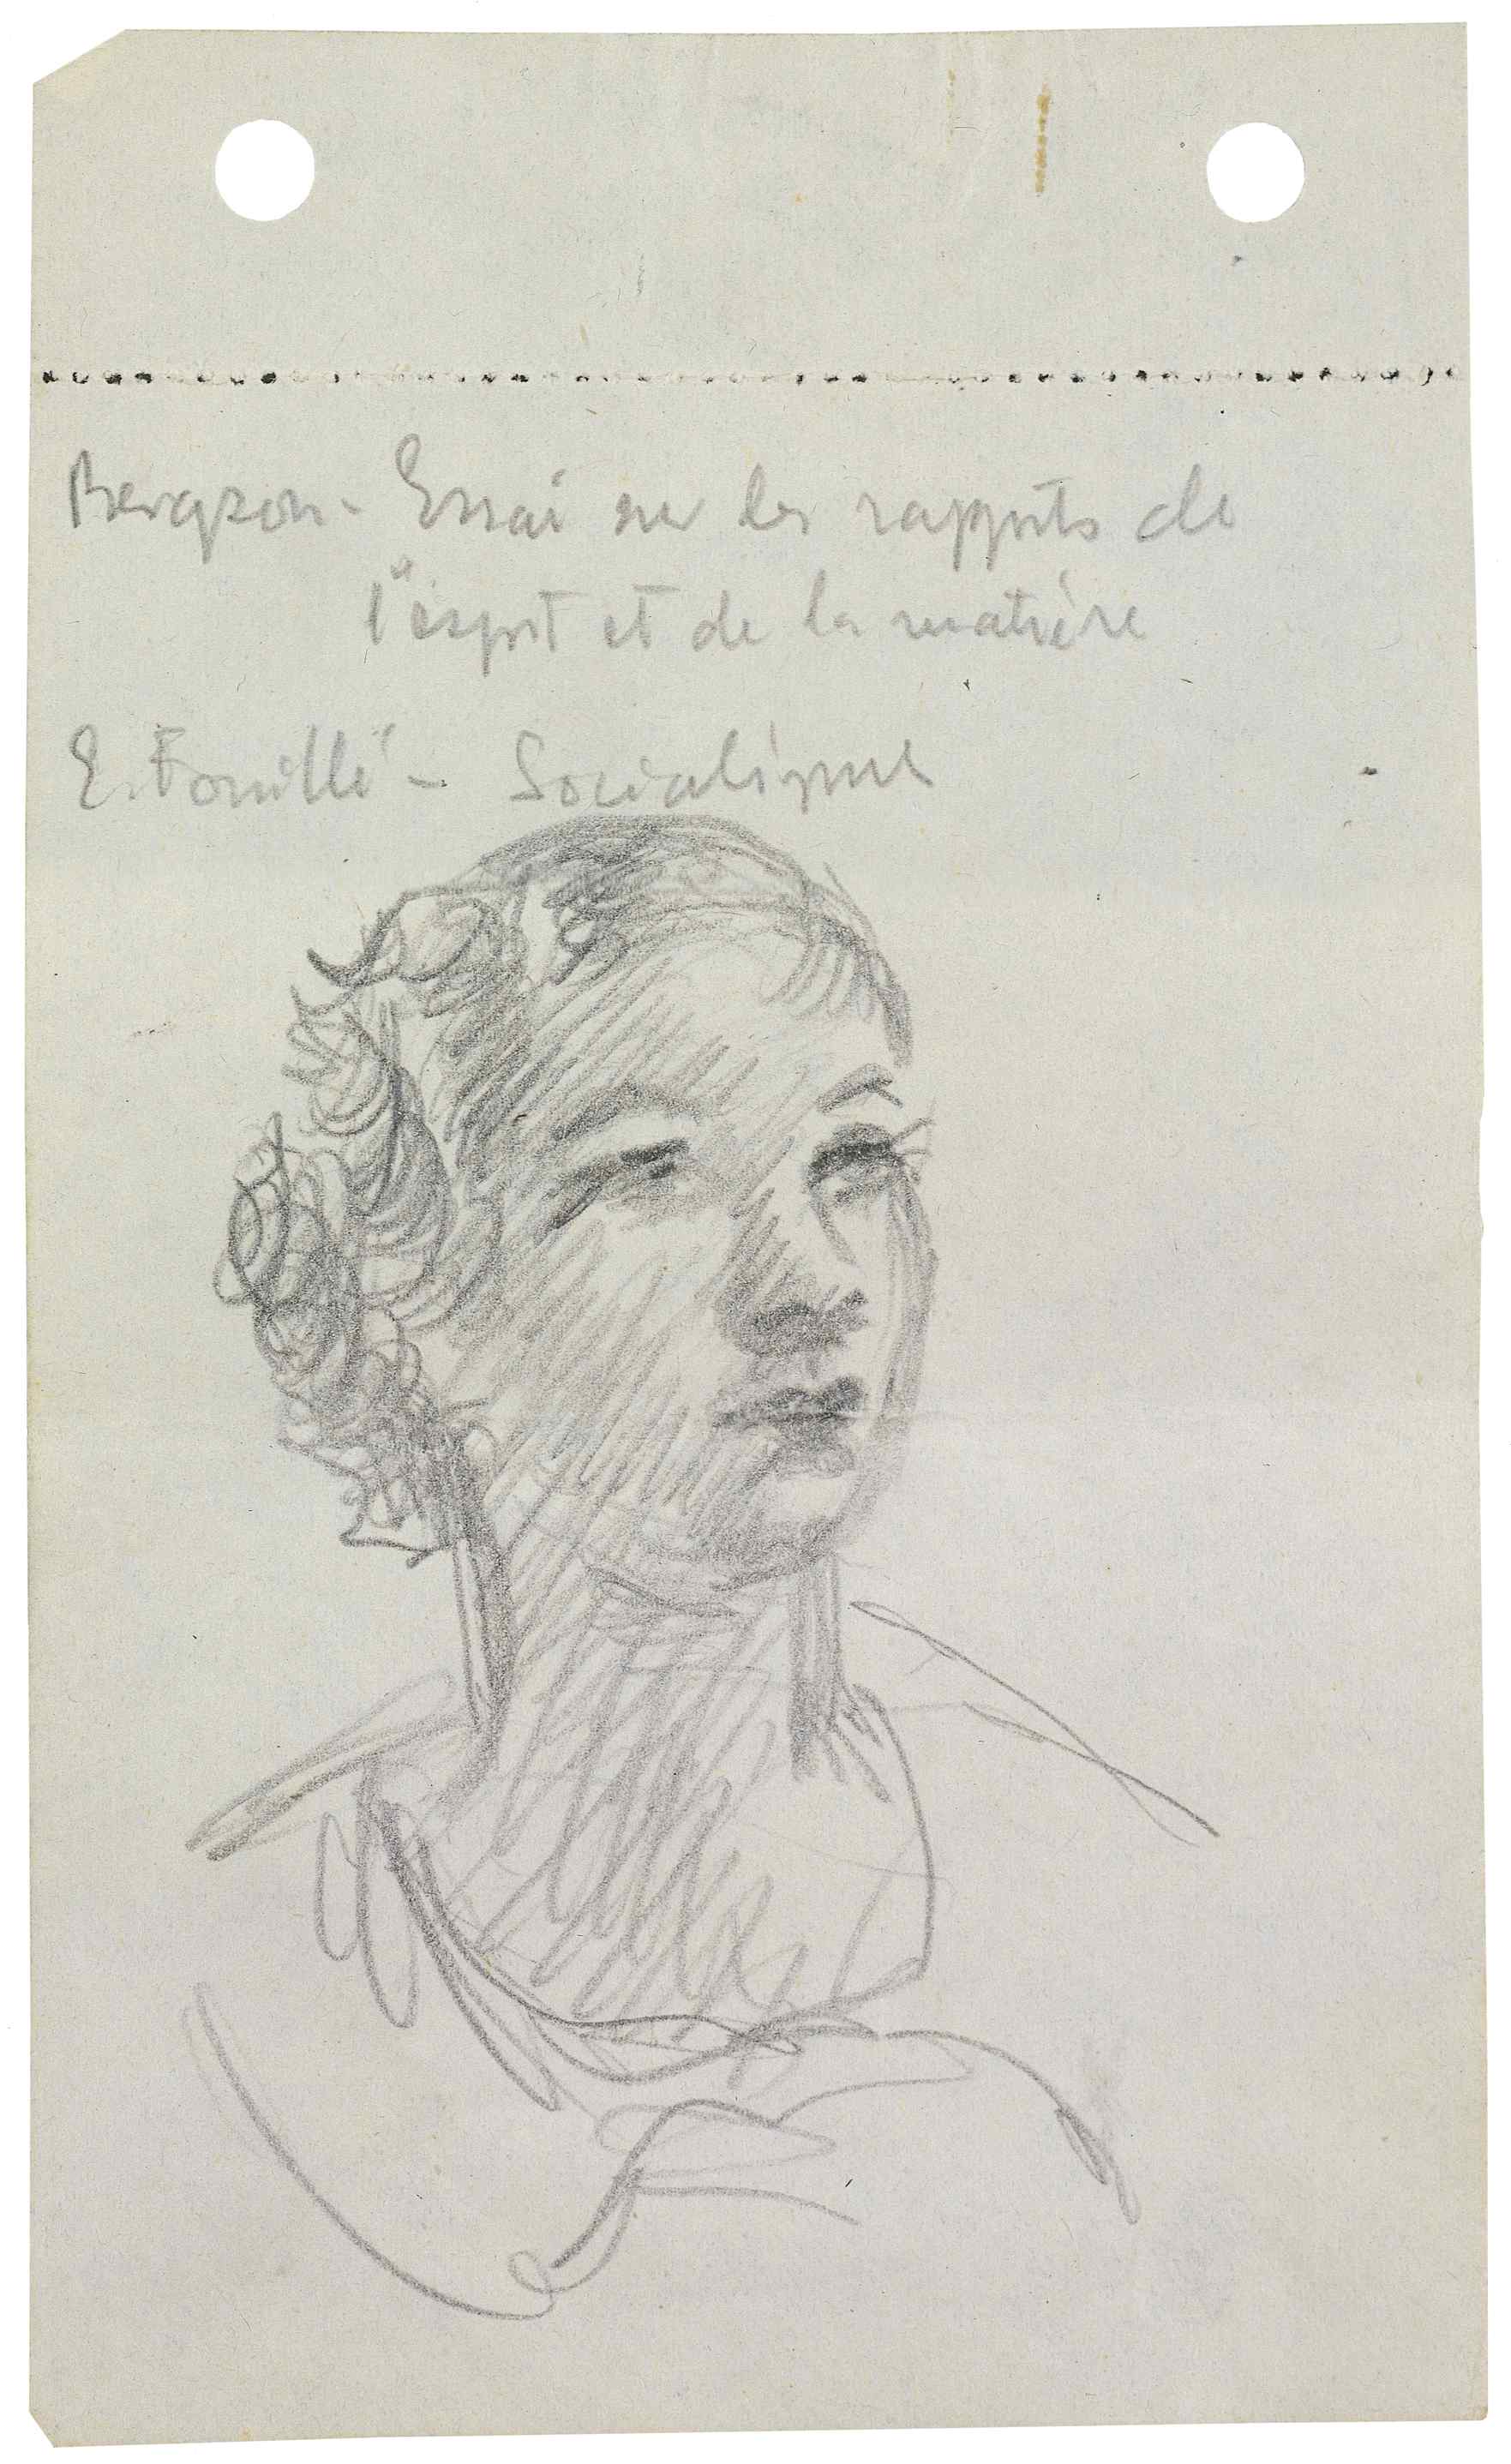 Bergson - Essai sur les rapports de
l'esprit et de la matière
E. Fouillé - Socialisme